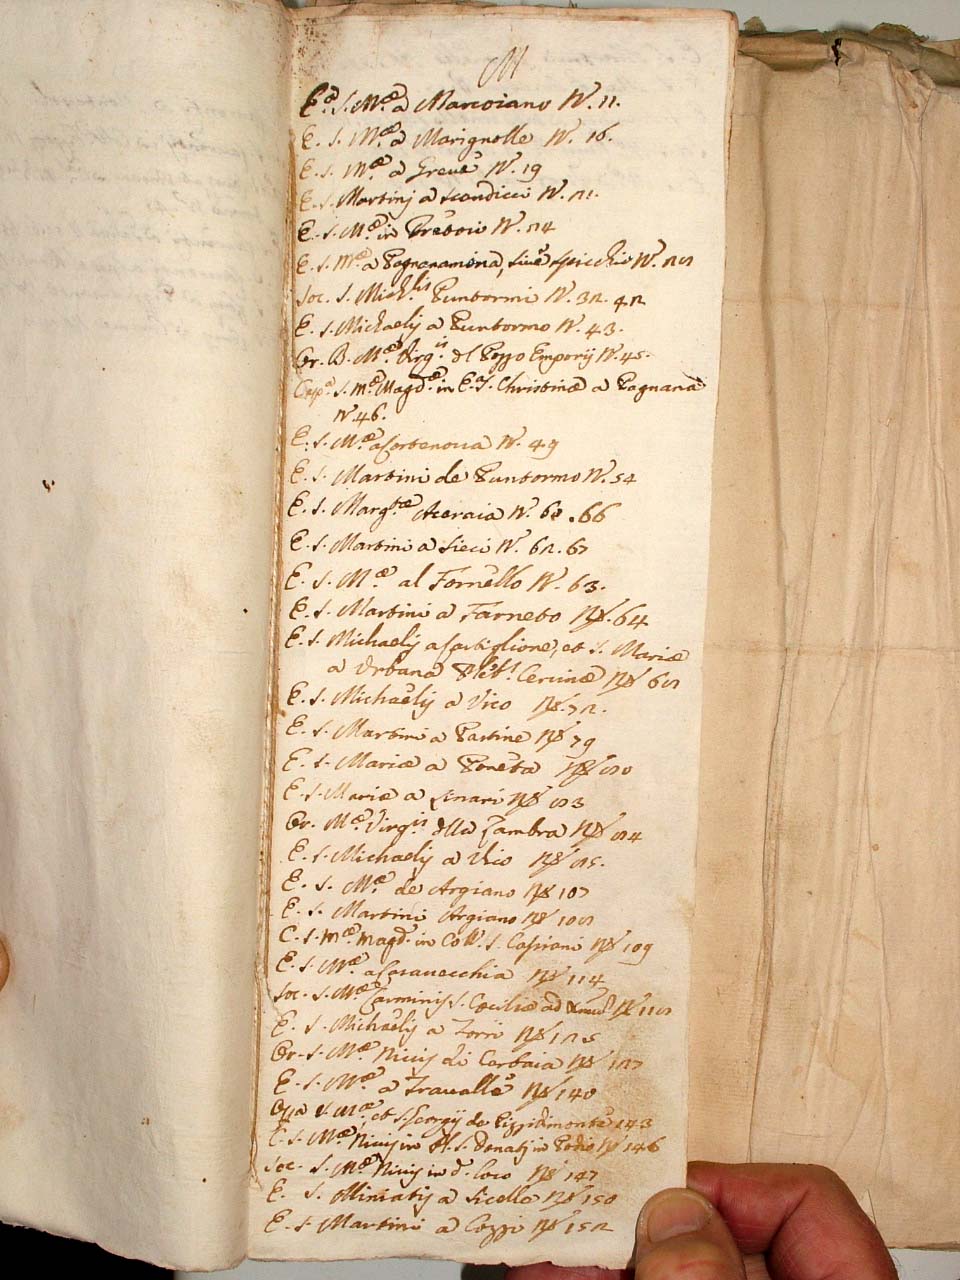 M
E.a S. M.æ a Marcoiano N. 11.
E. S. M.æ a Marignolle N. 16.
E. S. M.æ a Greve N. 19
E. S. Martinj a Scandicci N. 21.
E. S. M.æ in Treboio N. 24
E. S. M.æ a Pagnanamina, sive Spicchio N. 28
Soc. S. Mich.lis Puntormi N. 32. 42
E. S. Michaelij a Puntormo N. 43.
Or. B. M.æ Virg.is del Pozzo Emporij N. 45.
Capp.a S. M.æ Magd.æ in E.a S. Christinæ a Pagnana
N. 46.
E. S. M.æ a Cortenova N. 49
E. S. Martini de Puntormo N. 54
E. S. Marg.tæ Aceraia N. 60. 66
E. S. Martini a Sieci N. 62. 67
E. S. M.æ al Fornello N. 63.
E. S. Martini a Farneto N. 64
E. S. Michaelij a Castiglione, et S. Mariæ
a Urbana Pleb.s Cercinæ N. 68
E. S. Michaelij a Vico N. 72.
E. S. Martini a Pastine N. 79
E. S. Mariæ a Poneta N. 80
E. S. Mariæ a Linari N. 83
Or. M.æ Virg.is della Zambra N. 84
E. S. Michaelij a Vico N. 85.
E. S. M.æ de Argiano N. 107
E. S. Martini Argiano N. 108
C. S. M.æ Magd. in Coll. S. Casciani N. 109
E. S. M.æ a Casavecchia N. 114
Soc. S. M.æ Carminis S. Cæciliæ ad N. 118
E. S. Michaelij a Torri N. 125
Or. S. M.æ Nivis di Corbaia N. 127
E. S. M.æ a Travalle N. 140
M.æ, et S. Georgij de 143
E. S. M.æ Nivis in S. Donati in Podio N. 146
Soc. S. M.æ Nivis in d. loco N. 147
E. S. Miniatij a Sicelle N. 150
E. S. Martini a Cozzi N. 152